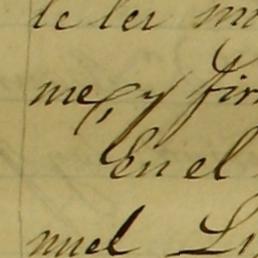 le ler
me, y fir
En el
nuel Li